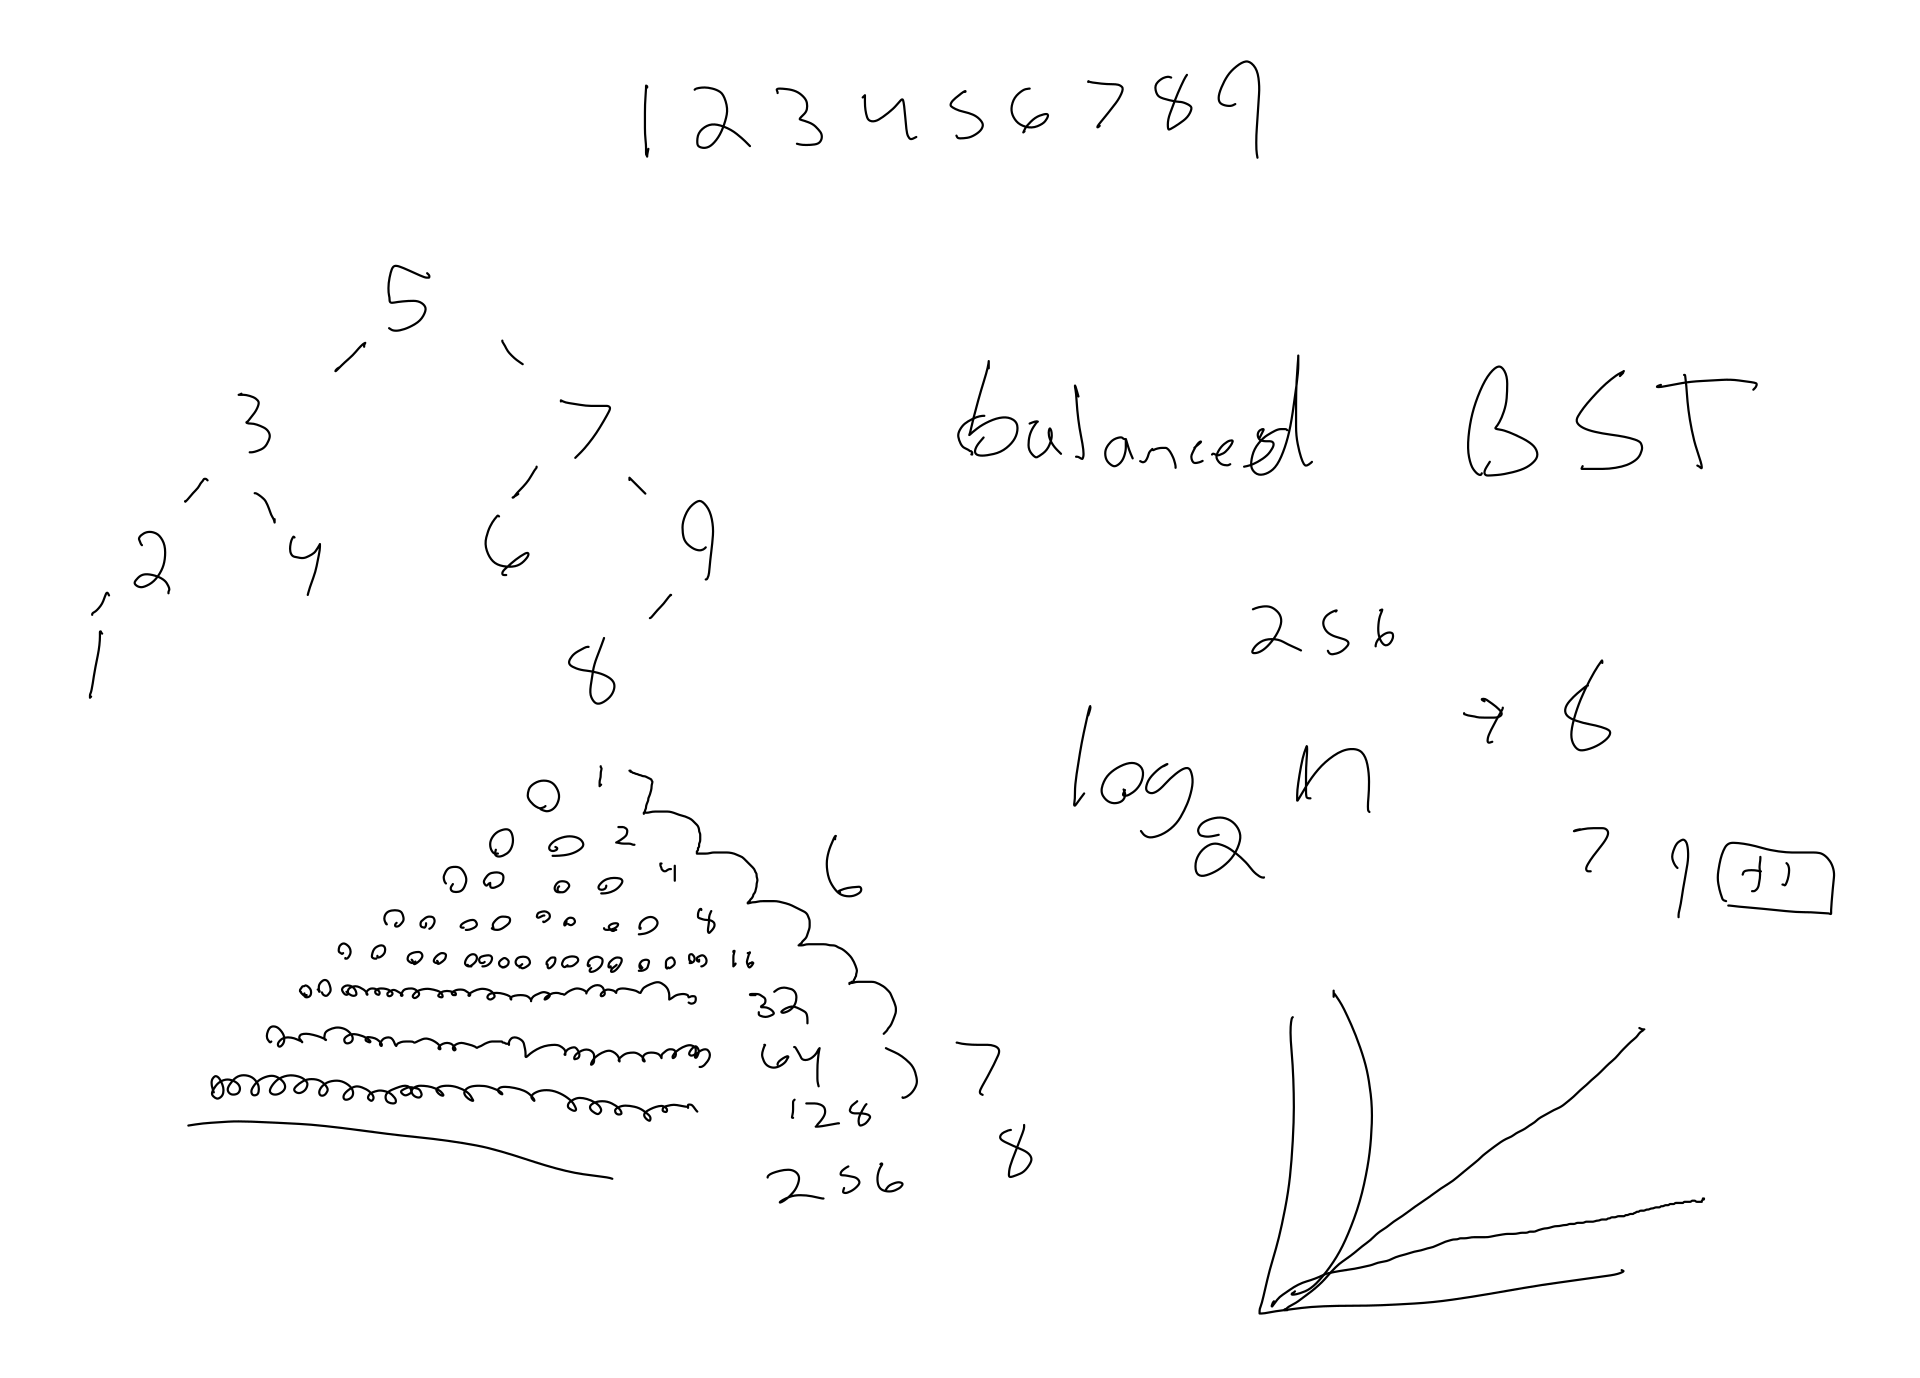 1 2 3 4 5 6 7 8 9
5
3 7
2 4 6 9
1 8
balanced BST
256
log2 n → 8
7 9
1
2
4
8
16
32
64
128
256
6
7
8